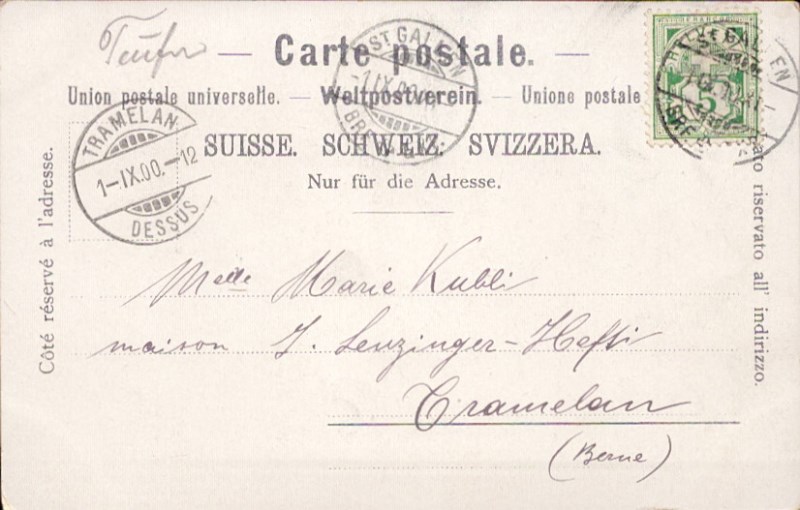 Carte postale.
Union postale universelle. — Weltpostverein. — Unione postale
SUISSE. SCHWEIZ. SVIZZERA.
Nur für die Adresse.
Côté réservé à l'adresse.
riservato all' indirizzo.
TRAMELAN
1-IX.00.-12
DESSUS
ST GALLEN
-1.IX.00.
5
Melle Marie Kubli
maison J. Leuzinger-Hefti
Tramelan
(Berne)